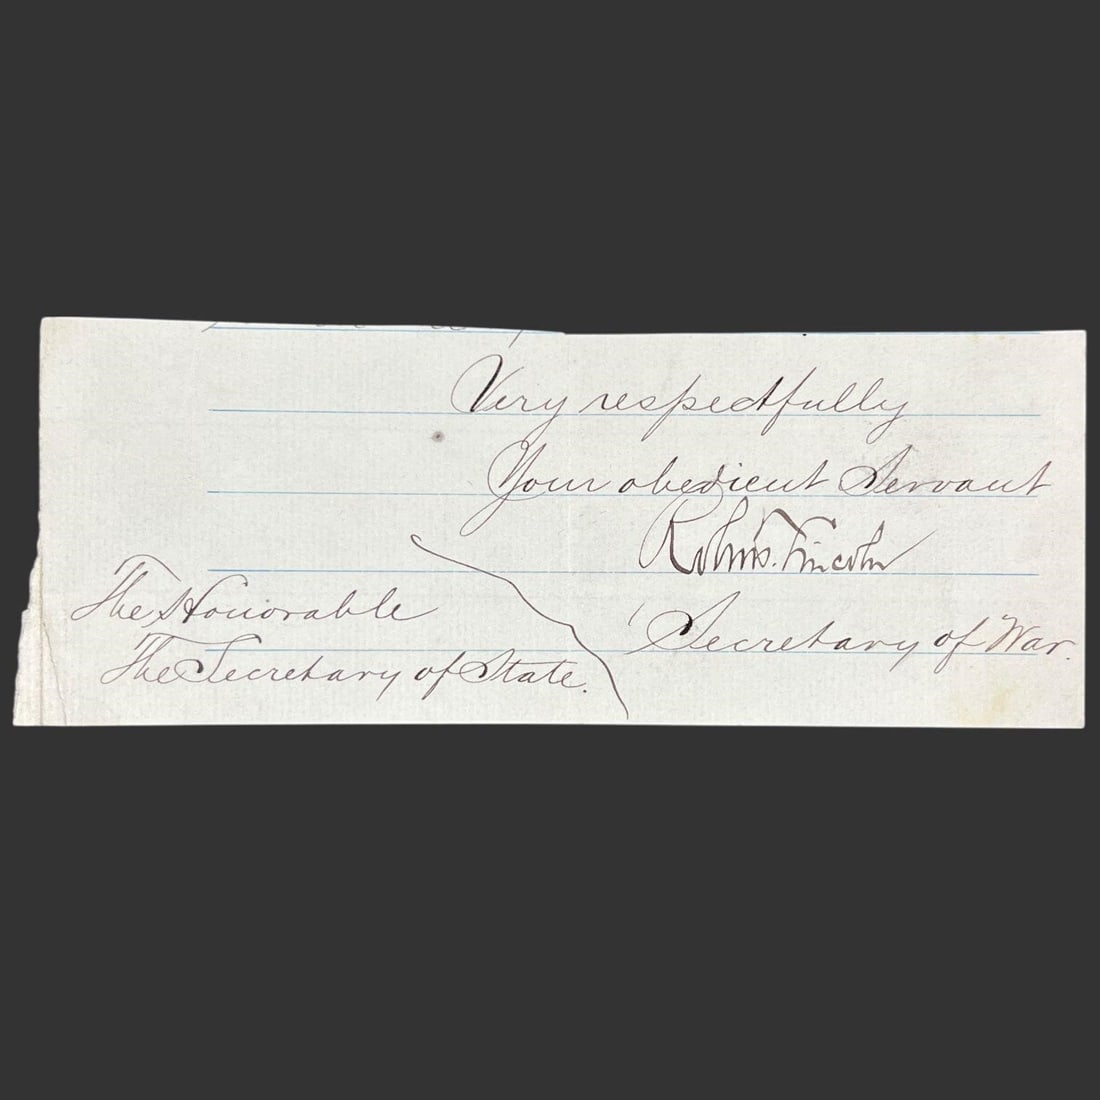 Very respectfully
Your obedient Servant
Robt. T. Lincoln
Secretary of War.
The Honorable
The Secretary of State.